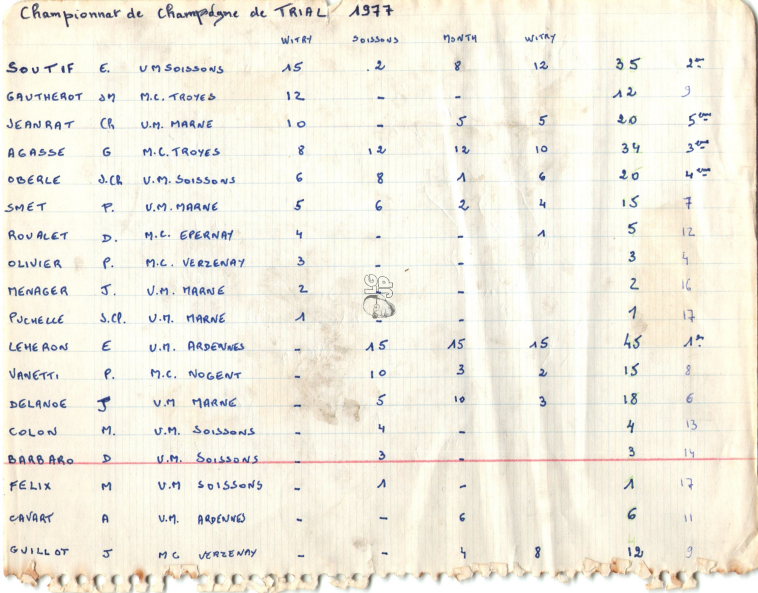 Championnat de Champagne de TRIAL 1977
WITRY SOISSONS MONTH WITRY
SOUTIF E. UM SOISSONS 15 2 8 12 35 2ème
GAUTHEROT JM M.C. TROYES 12 - - 12 9
JEANRAT Ch U.M. MARNE 10 - 5 5 20 5ème
AGASSE G M.C. TROYES 8 12 12 10 34 3ème
OBERLE J.Ch U.M. SOISSONS 6 8 1 6 20 4ème
SMET P. U.M. MARNE 5 6 2 4 15 7
ROUALET D. M.C. EPERNAY 4 - - 1 5 12
OLIVIER P. M.C. VERZENAY 3 - - 3 4
MENAGER J. U.M. MARNE 2 - 2 16
PUCHELLE J.Cl. U.M. MARNE 1 - - 1 17
LEHERON E U.M. ARDENNES - 15 15 15 45 1er
VANETTI P. M.C. NOGENT - 10 3 2 15 8
DELANOE J U.M MARNE - 5 10 3 18 6
COLON M. U.M. SOISSONS - 4 - 4 13
BARBARO D U.M. SOISSONS - 3 - 3 14
FELIX M U.M SOISSONS - 1 - 1 17
CAVART A U.M. ARDENNES - - 6 6 11
GUILLOT J MC VERZENAY - - 4 8 12 9
LG JP